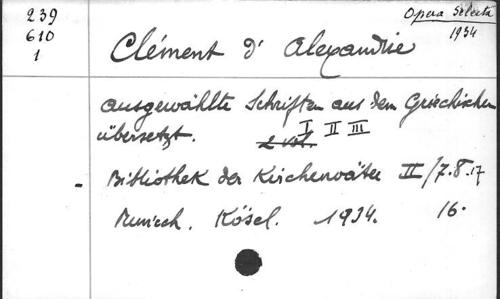 239
610
1
Opera Selecta
1934
Clément d' Alexandrie
ausgewählte Schriften aus dem Griechischen
übersetzt. 2 vol. I II III
- Bibliothek der Kirchenväter II/7.8.17
Munich. Kösel. 1934. 16.